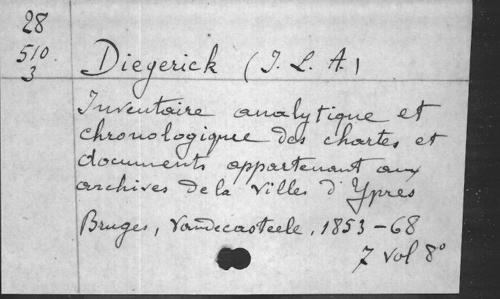 28
510.
3
Diegerick (I. L. A.)
Inventaire analytique et
chronologique des chartes et
documents appartenant aux
archives de la villes d'Ypres
Bruges, Vandecasteele, 1853-68
7 vol 8°